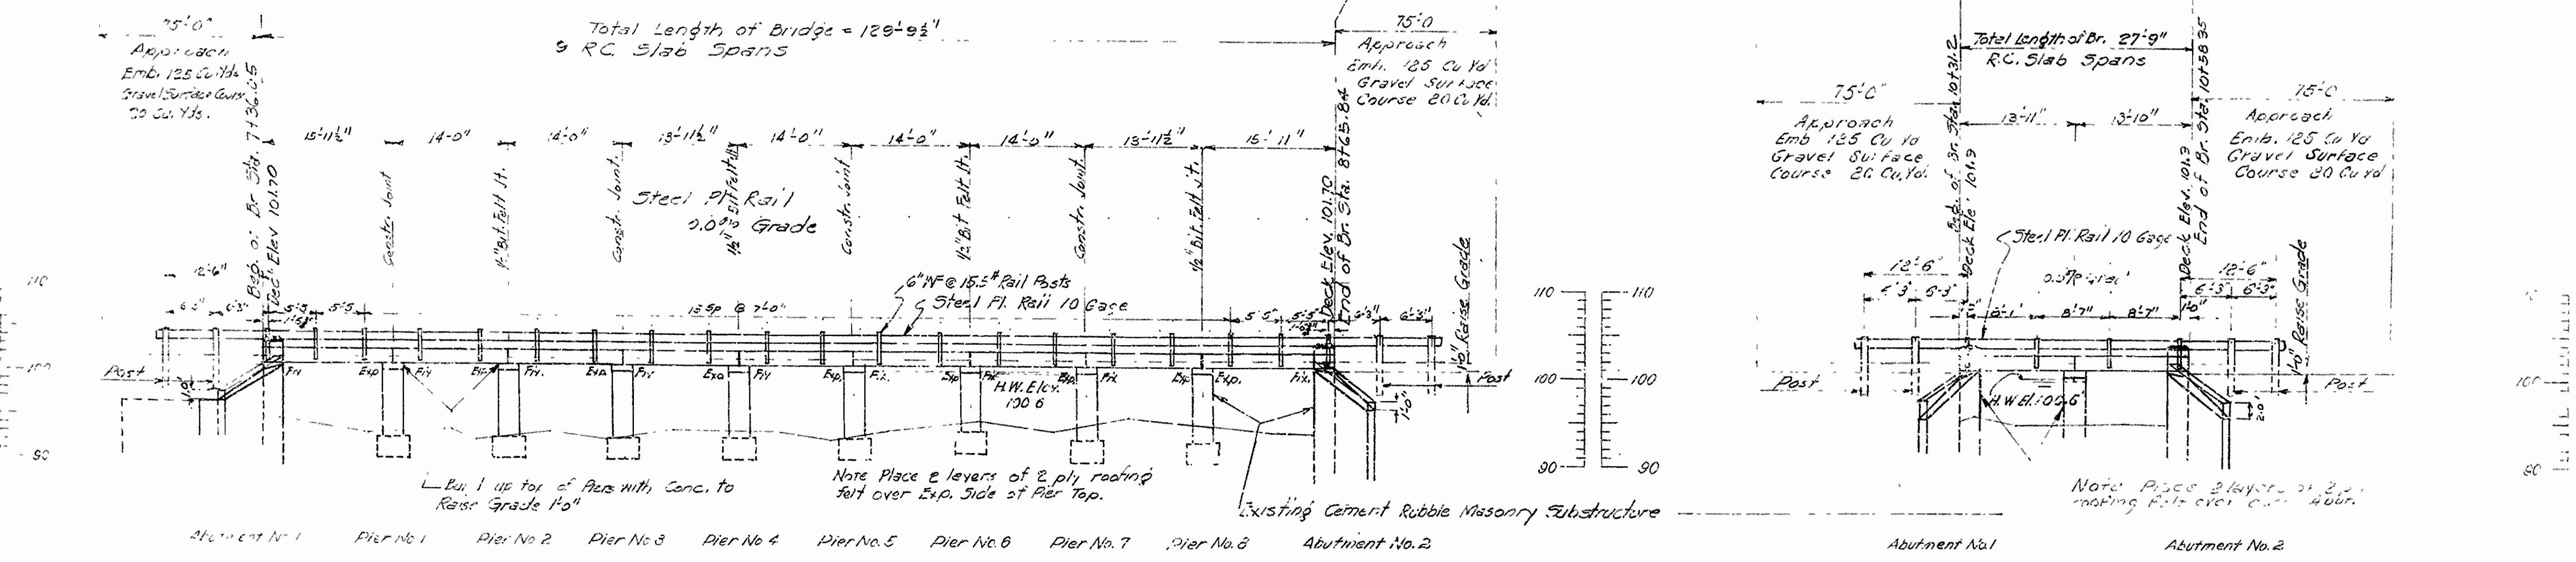 75'-0"
Approach
Emb. 125 Cu Yds
Gravel Surface Course
20 Cu. Yds.
Total Length of Bridge = 129'-9½"
9 R.C. Slab Spans
75'-0
Approach
Emb. 125 Cu Yd
Gravel Surface
Course 20 Cu Yd.
Beg. of Br Sta. 7+36.05
Deck Elev 101.70
15'-11½" 14'-0" 14'-0" 13'-11½" 14'-0" 14'-0" 14'-0" 13'-11½" 15'-11"
Constr. Joint
½" Bit. Felt Jt.
Constr. Joint
½" Bit Felt
Constr. Joint
½" Bit Felt Jt.
Constr. Joint
½" Bit. Felt Jt.
Steel Pl. Rail
0.0% Grade
Deck Elev. 101.70
End of Br. Sta. 8+65.84
1'-0" Raise Grade
12'-6"
6'-3" 6'-3" 5'-5" 5'-5"
15 Sp @ 7'-0"
6" WF @ 15.5# Rail Posts
Steel Pl. Rail 10 Gage
5'-5" 5'-5" 6'-3" 6'-3"
110
100
90
Post
Fix Exp. Fix Fix. Exp Fix Exp Fix Exp. Fix. Exp. Fix Exp. Fix Exp. Exp. Fix.
H.W. Elev.
100.6
1'-0"
Post
Build up top of Piers with Conc. to
Raise Grade 1'-0"
Note Place 2 layers of 2 ply roofing
felt over Exp. Side of Pier Top.
Existing Cement Rubble Masonry Substructure
Abutment No 1 Pier No 1 Pier No 2 Pier No 3 Pier No 4 Pier No. 5 Pier No. 6 Pier No. 7 Pier No. 8 Abutment No. 2
110 110
100 100
90 90
Total Length of Br. 27'-9"
R.C. Slab Spans
75'-0"
Approach
Emb 125 Cu Yd
Gravel Surface
Course 20 Cu. Yd.
Beg. of Br. Sta. 10+31.2
Deck Ele' 101.9
13'-11" 13'-10"
Deck Elev. 101.9
End of Br. Sta. 10+58.95
75'-0
Approach
Emb. 125 Cu Yd
Gravel Surface
Course 20 Cu Yd
Steel Pl. Rail 10 Gage
12'-6"
6'-3" 6'-3"
8'-7" 8'-7" 1'-0"
12'-6"
6'-3" 6'-3"
1'-0" Raise Grade
Post
H.W. El. 100.6
2.0'
Post
100
90
Note Place 2 layers of 2 ply
roofing felt over Abut.
Abutment No. 1 Abutment No. 2